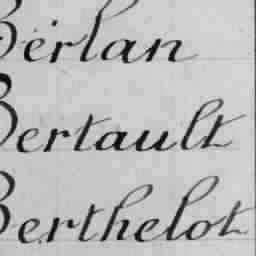 Berlan
Bertault
Berthelot